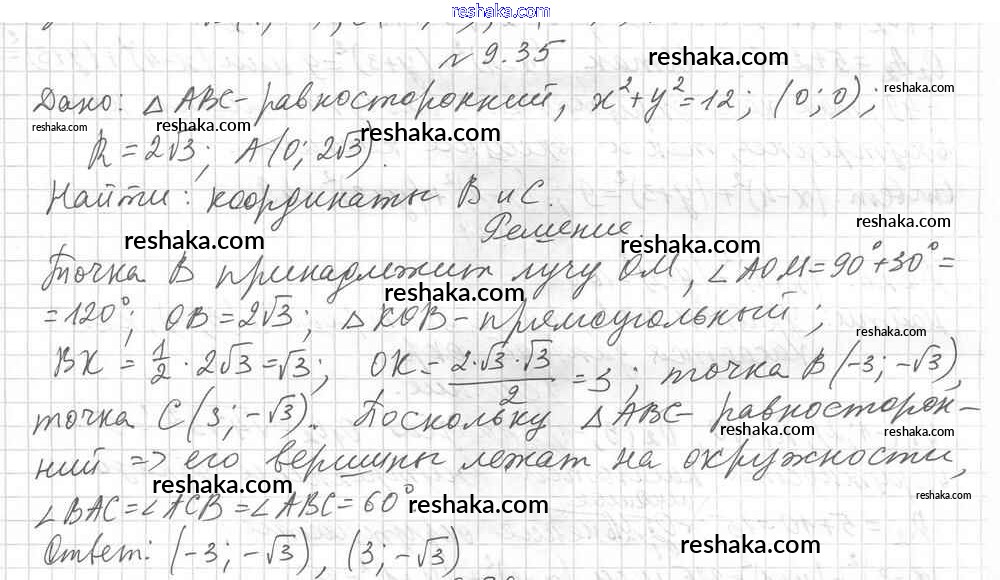 reshaka.com
№ 9.35 reshaka.com
Дано: △ ABC - равносторонний, x² + y² = 12; (0; 0); reshaka.com
reshaka.com reshaka.com reshaka.com
R = 2√3; A(0; 2√3). reshaka.com
Найти: координаты B и C.
Решение. reshaka.com
reshaka.com
Точка B принадлежит лучу OM, ∠AOM = 90° + 30° =
reshaka.com
= 120°; OB = 2√3; △ KOB - прямоугольный;
reshaka.com
BK = 1/2 · 2√3 = √3; OK = (2 · √3 · √3)/2 = 3; точка B(-3; -√3),
точка C(3; -√3). Поскольку △ ABC - равносторон-
reshaka.com reshaka.com
ний => его вершины лежат на окружности,
reshaka.com reshaka.com
∠BAC = ∠ACB = ∠ABC = 60° reshaka.com
Ответ: (-3; -√3), (3; -√3) reshaka.com